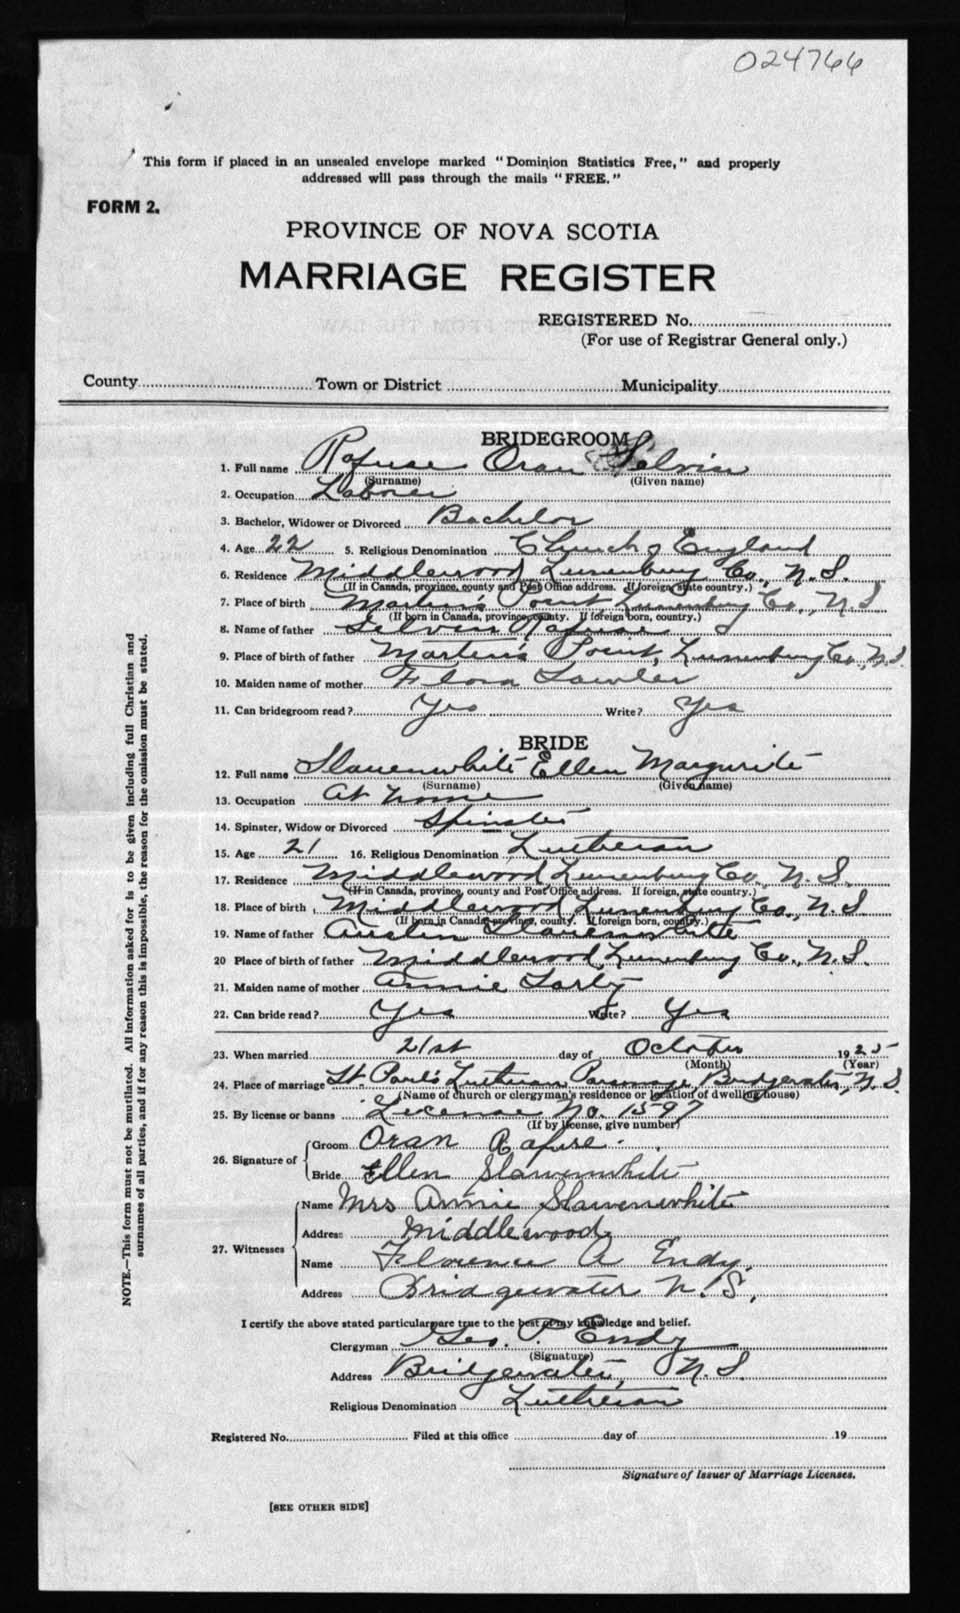 024766
This form if placed in an unsealed envelope marked "Dominion Statistics Free," and properly
addressed will pass through the mails "FREE."
FORM 2.
PROVINCE OF NOVA SCOTIA
MARRIAGE REGISTER
REGISTERED No.
(For use of Registrar General only.)
County Town or District Municipality
BRIDEGROOM
1. Full name Rafuse Oran Selvin
(Surname) (Given name)
2. Occupation Laborer
3. Bachelor, Widower or Divorced Bachelor
4. Age 22 5. Religious Denomination Church of England
6. Residence Middlewood, Lunenburg Co., N.S.
(If in Canada, province, county and Post Office address. If foreign, state country.)
7. Place of birth Martin's Point, Lunenburg Co., N.S.
(If born in Canada, province, county. If foreign born, country.)
8. Name of father Selvin Rafuse
9. Place of birth of father Martin's Point, Lunenburg Co., N.S.
10. Maiden name of mother Flora Lawler
11. Can bridegroom read? Yes Write? Yes
BRIDE
12. Full name Slauenwhite Ellen Margurite
(Surname) (Given name)
13. Occupation At home
14. Spinster, Widow or Divorced Spinster
15. Age 21 16. Religious Denomination Lutheran
17. Residence Middlewood, Lunenburg Co. N.S.
(If in Canada, province, county and Post Office address. If foreign, state country.)
18. Place of birth Middlewood, Lunenburg Co., N.S.
(If born in Canada, province, county. If foreign born, country.)
19. Name of father Austin Slauenwhite
20 Place of birth of father Middlewood, Lunenburg Co., N.S.
21. Maiden name of mother Annie
22. Can bride read? Yes Write? Yes
23. When married 21st day of October 1925
(Month) (Year)
24. Place of marriage St. Paul's Lutheran Parsonage, Bridgewater, N.S.
(Name of church or clergyman's residence or location of dwelling house)
25. By license or banns License No. 1597
(If by license, give number)
26. Signature of Groom Oran Rafuse.
Bride Ellen Slauenwhite
27. Witnesses Name Mrs Annie Slauenwhite
Address Middlewood
Name Florence A Endy.
Address Bridgewater N.S.
I certify the above stated particulars are true to the best of my knowledge and belief.
Clergyman Geo. P. Endy
(Signature)
Address Bridgewater, N.S.
Religious Denomination Lutheran
Registered No. Filed at this office day of 19
Signature of Issuer of Marriage Licenses.
[SEE OTHER SIDE]
NOTE.—This form must not be mutilated. All information asked for is to be given including full Christian and
surnames of all parties, and if for any reason this is impossible, the reason for the omission must be stated.